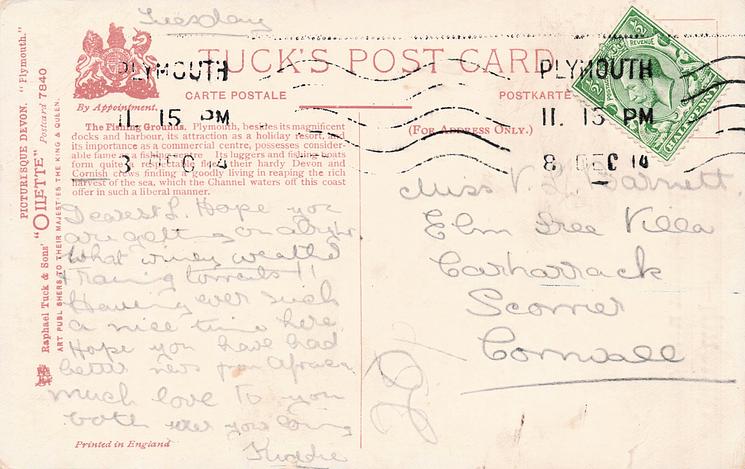 Tuesday
TUCK'S POST CARD
CARTE POSTALE
POSTKARTE
By Appointment.
(For Address Only.)
PLYMOUTH
11. 15 PM
8 DEC 14
PLYMOUTH
11. 15 PM
8 DEC 14
REVENUE
HALFPENNY
PICTURESQUE DEVON. "Plymouth."
Raphael Tuck & Sons' "OILETTE" Postcard 7840
ART PUBLISHERS TO THEIR MAJESTIES THE KING & QUEEN.
The Fishing Grounds. Plymouth, besides its magnificent
docks and harbor, its attractions as a holiday resort, and
its importance as a commercial centre, possesses consider-
able fame as a fishing port. Its luggers and fishing boats
form quite a respectable fleet, their hardy Devon and
Cornish crews finding a goodly living in reaping the rich
harvest of the sea, which the Channel waters off this coast
offer in such a liberal manner.
Dearest L. Hope you
are getting on alright.
What weather
raining torrents!!
Having ever such
a nice time here
Hope you have had
better news from African
much love to you
both ever your loving
Miss V. L. Barnett
Elm Tree Villa
Carharrack
Scorrier
Cornwall
Printed in England